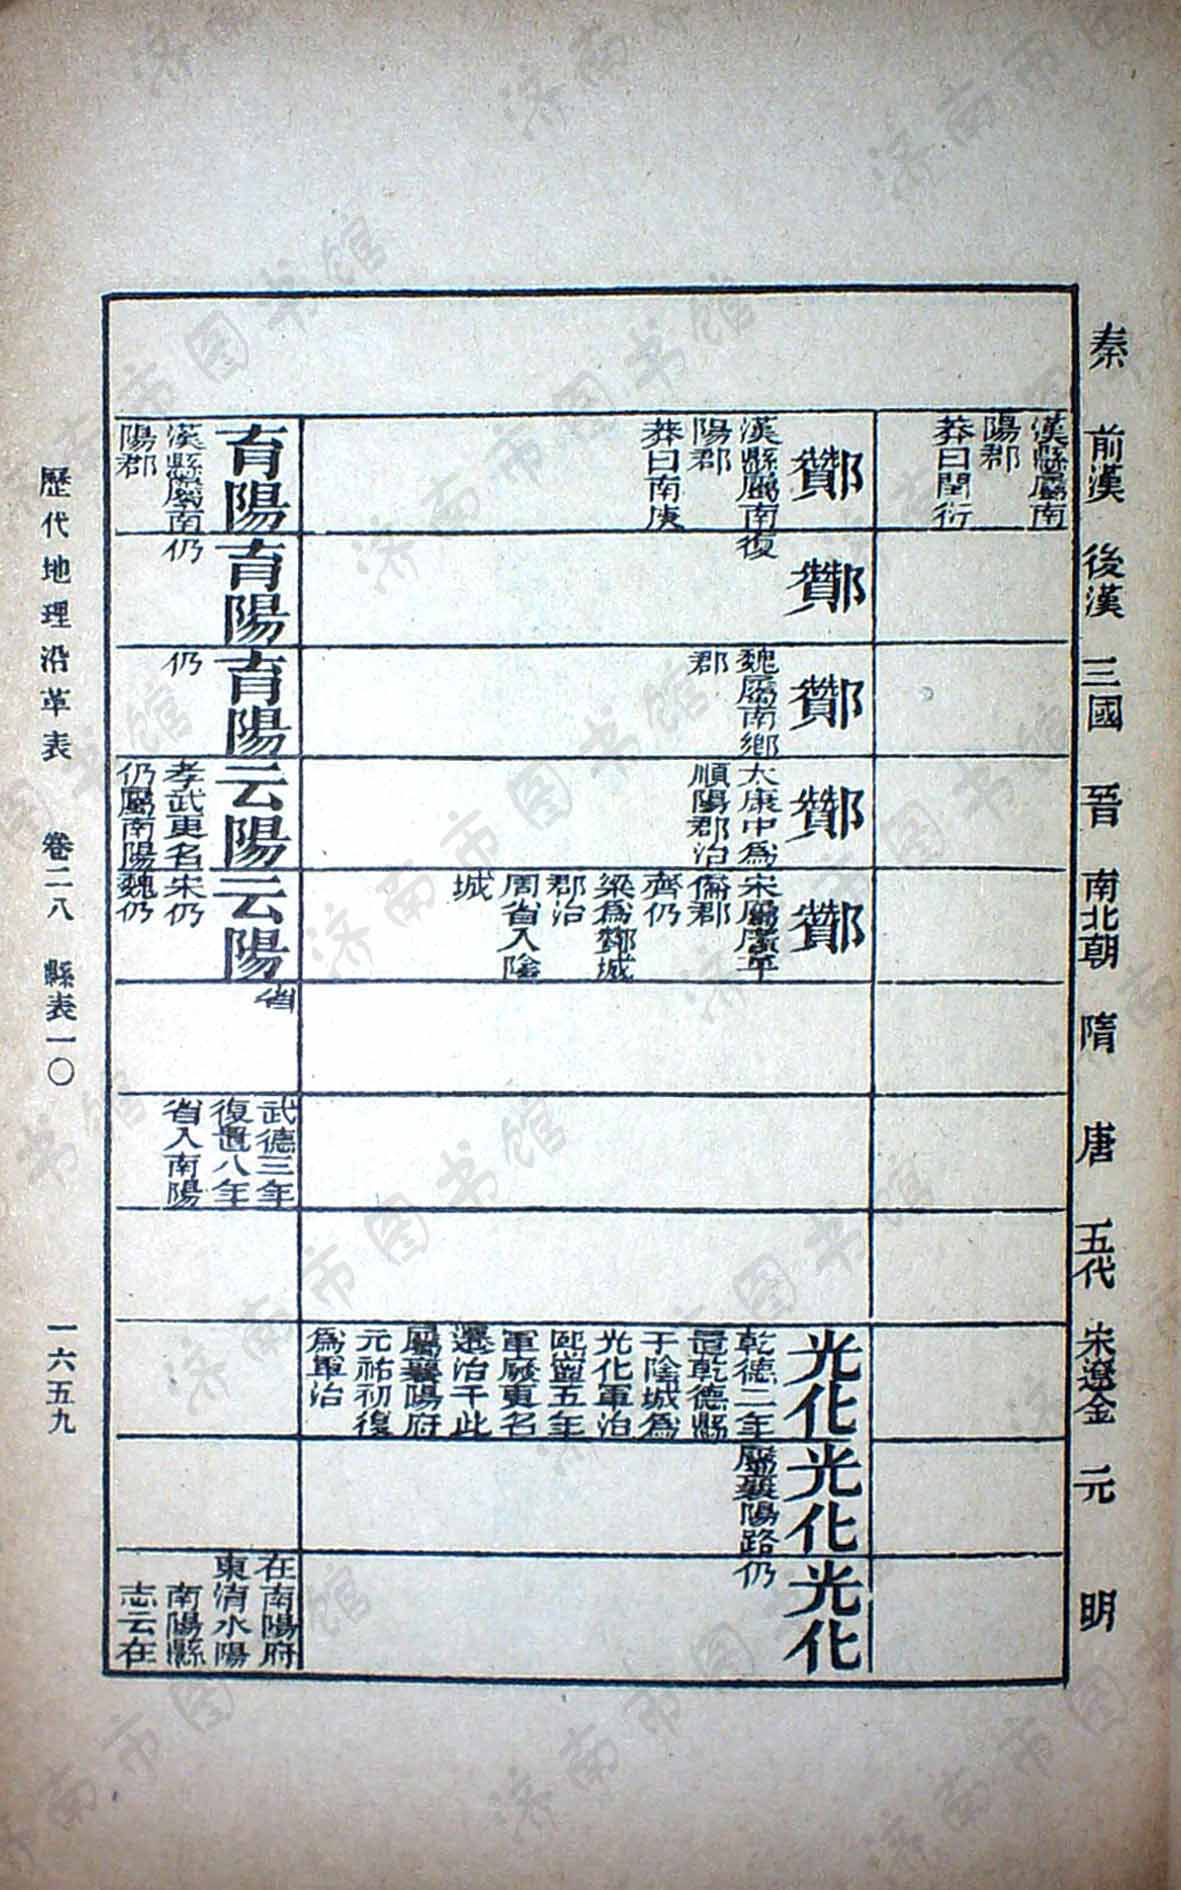 秦
前漢
後漢
三國
晉
南北朝
隋
唐
五代
宋遼金
元
明
漢縣屬南
陽郡
莽曰閏衍
酇
漢縣屬南
陽郡
莽曰南庚
酇
復
酇
魏屬南鄉
郡
酇
太康中爲
順陽郡治
酇
宋屬廣平
僑郡
齊仍
梁爲酇城
郡治
周省入陰
城
光化
乾德二年
置乾德縣
于陰城爲
光化軍治
熙寧五年
軍廢更名
遷治于此
屬襄陽府
元祐初復
爲軍治
光化
屬襄陽路
光化
仍
育陽
漢縣屬南
陽郡
育陽
仍
育陽
仍
云陽
孝武更名
仍屬南陽
云陽
宋仍
魏仍
省
武德三年
復置八年
省入南陽
在南陽府
東淯水陽
南陽縣
志云在
歷代地理沿革表 卷二八 縣表一〇 一六五九
济南市图书馆